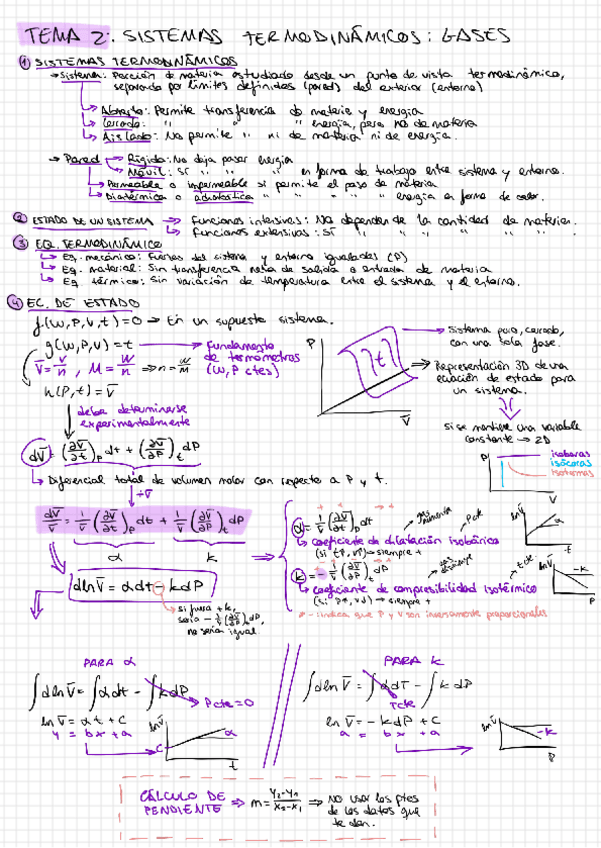 TEMA 2: SISTEMAS TERMODINÁMICOS: GASES
① SISTEMAS TERMODINÁMICOS
→ Sistema: Porción de materia estudiado desde un punto de vista termodinámico,
separada por límites definidos (pared) del exterior (entorno)
↳ Abierto: Permite transferencia de materia y energía
↳ Cerrado: " " " energía, pero no de materia
↳ Aislado: No permite " ni de materia ni de energía.
→ Pared → Rígida: No deja pasar energía
↳ Móvil: Sí " " " en forma de trabajo entre sistema y entorno.
↳ Permeable o impermeable si permite el paso de materia
↳ Diatérmica o adiabática " " " " energía en forma de calor.
② ESTADO DE UN SISTEMA → Funciones intensivas: No dependen de la cantidad de materia.
↳ Funciones extensivas: SÍ " " " " "
③ EQ. TERMODINÁMICO
↳ Eq. mecánico: Fuerzas del sistema y entorno igualadas (P)
↳ Eq. material: Sin transferencia neta de salida o entrada de materia
↳ Eq. térmico: Sin variación de temperatura entre el sistema y el entorno.
④ EC. DE ESTADO
f(w,P,V,t) = 0 → En un supuesto sistema.
g(w,P,V) = t → Fundamento de termómetros (w,P ctes)
V̄ = V/n , M = w/n ⇒ n = w/M
h(P,t) = V̄
↓ debe determinarse experimentalmente
P
t
V̄
→ Sistema puro, cerrado, con una sola fase.
⇒ Representación 3D de una ecuación de estado para un sistema.
Si se mantiene una variable constante → 2D
P
isobaras
isócoras
isotermas
V
dV̄ = (∂V̄/∂t)P dt + (∂V̄/∂P)t dP
↳ Diferencial total de volumen molar con respecto a P y t.
÷V̄
dV̄/V̄ = 1/V̄ (∂V̄/∂t)P dt + 1/V̄ (∂V̄/∂P)t dP
α k
dlnV̄ = αdt − kdP
→ si fuera +k, sería − 1/V̄ (∂V̄/∂P)t dP, no sería igual.
α = 1/V̄ (∂V̄/∂t)P dt
P cte
↳ coeficiente de dilatación isobárica
→ siempre +
k = − 1/V̄ (∂V̄/∂P)t dP
t cte
↳ coeficiente de compresibilidad isotérmico
→ siempre +
* − indica que P y V son inversamente proporcionales
lnV̄ α t
lnV̄ −k P
PARA α
∫dlnV̄ = ∫αdt − ∫kdP → P cte = 0
lnV̄ = αt + C
y = bx + a
lnV̄ C α t
PARA k
∫dlnV̄ = ∫αdT − ∫k dP
T cte
lnV̄ = −kdP + C
a = bx + a
lnV̄ −k P
CÁLCULO DE PENDIENTE ⇒ m = y₂−y₁/x₂−x₁ ⇒ NO usar los ptos de los datos que te dan.